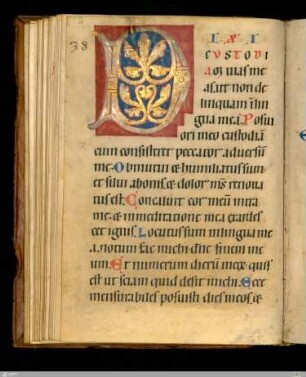 38
D IXI
CVSTODI
A͞Ọ uias me
as ut non de
linquam i̅ lin
gua mea. Posui
ori meo custodiā
cum consisteret peccator aduersū
me. Obmutui & humiliatus sum
et silui a bonis. & dolor m̅s renoua
tus est. Concaluit cor meū intra
me. & in meditatione mea exardes
cet ignis. Locutus sum in lingua me
a. notum fac michi dn̅e finem me
um. Et numerum dierū meor̄ quis
est ut sciam quid desit michi. Ecce
mensurabiles posuisti dies meos. &